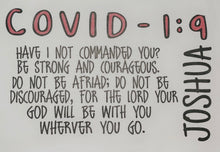 COVID-1:9
HAVE I NOT COMMANDED YOU?
BE STRONG AND COURAGEOUS.
DO NOT BE AFRIAD; DO NOT BE
DISCOURAGED, FOR THE LORD YOUR
GOD WILL BE WITH YOU
WHERVER YOU GO.
JOSHUA